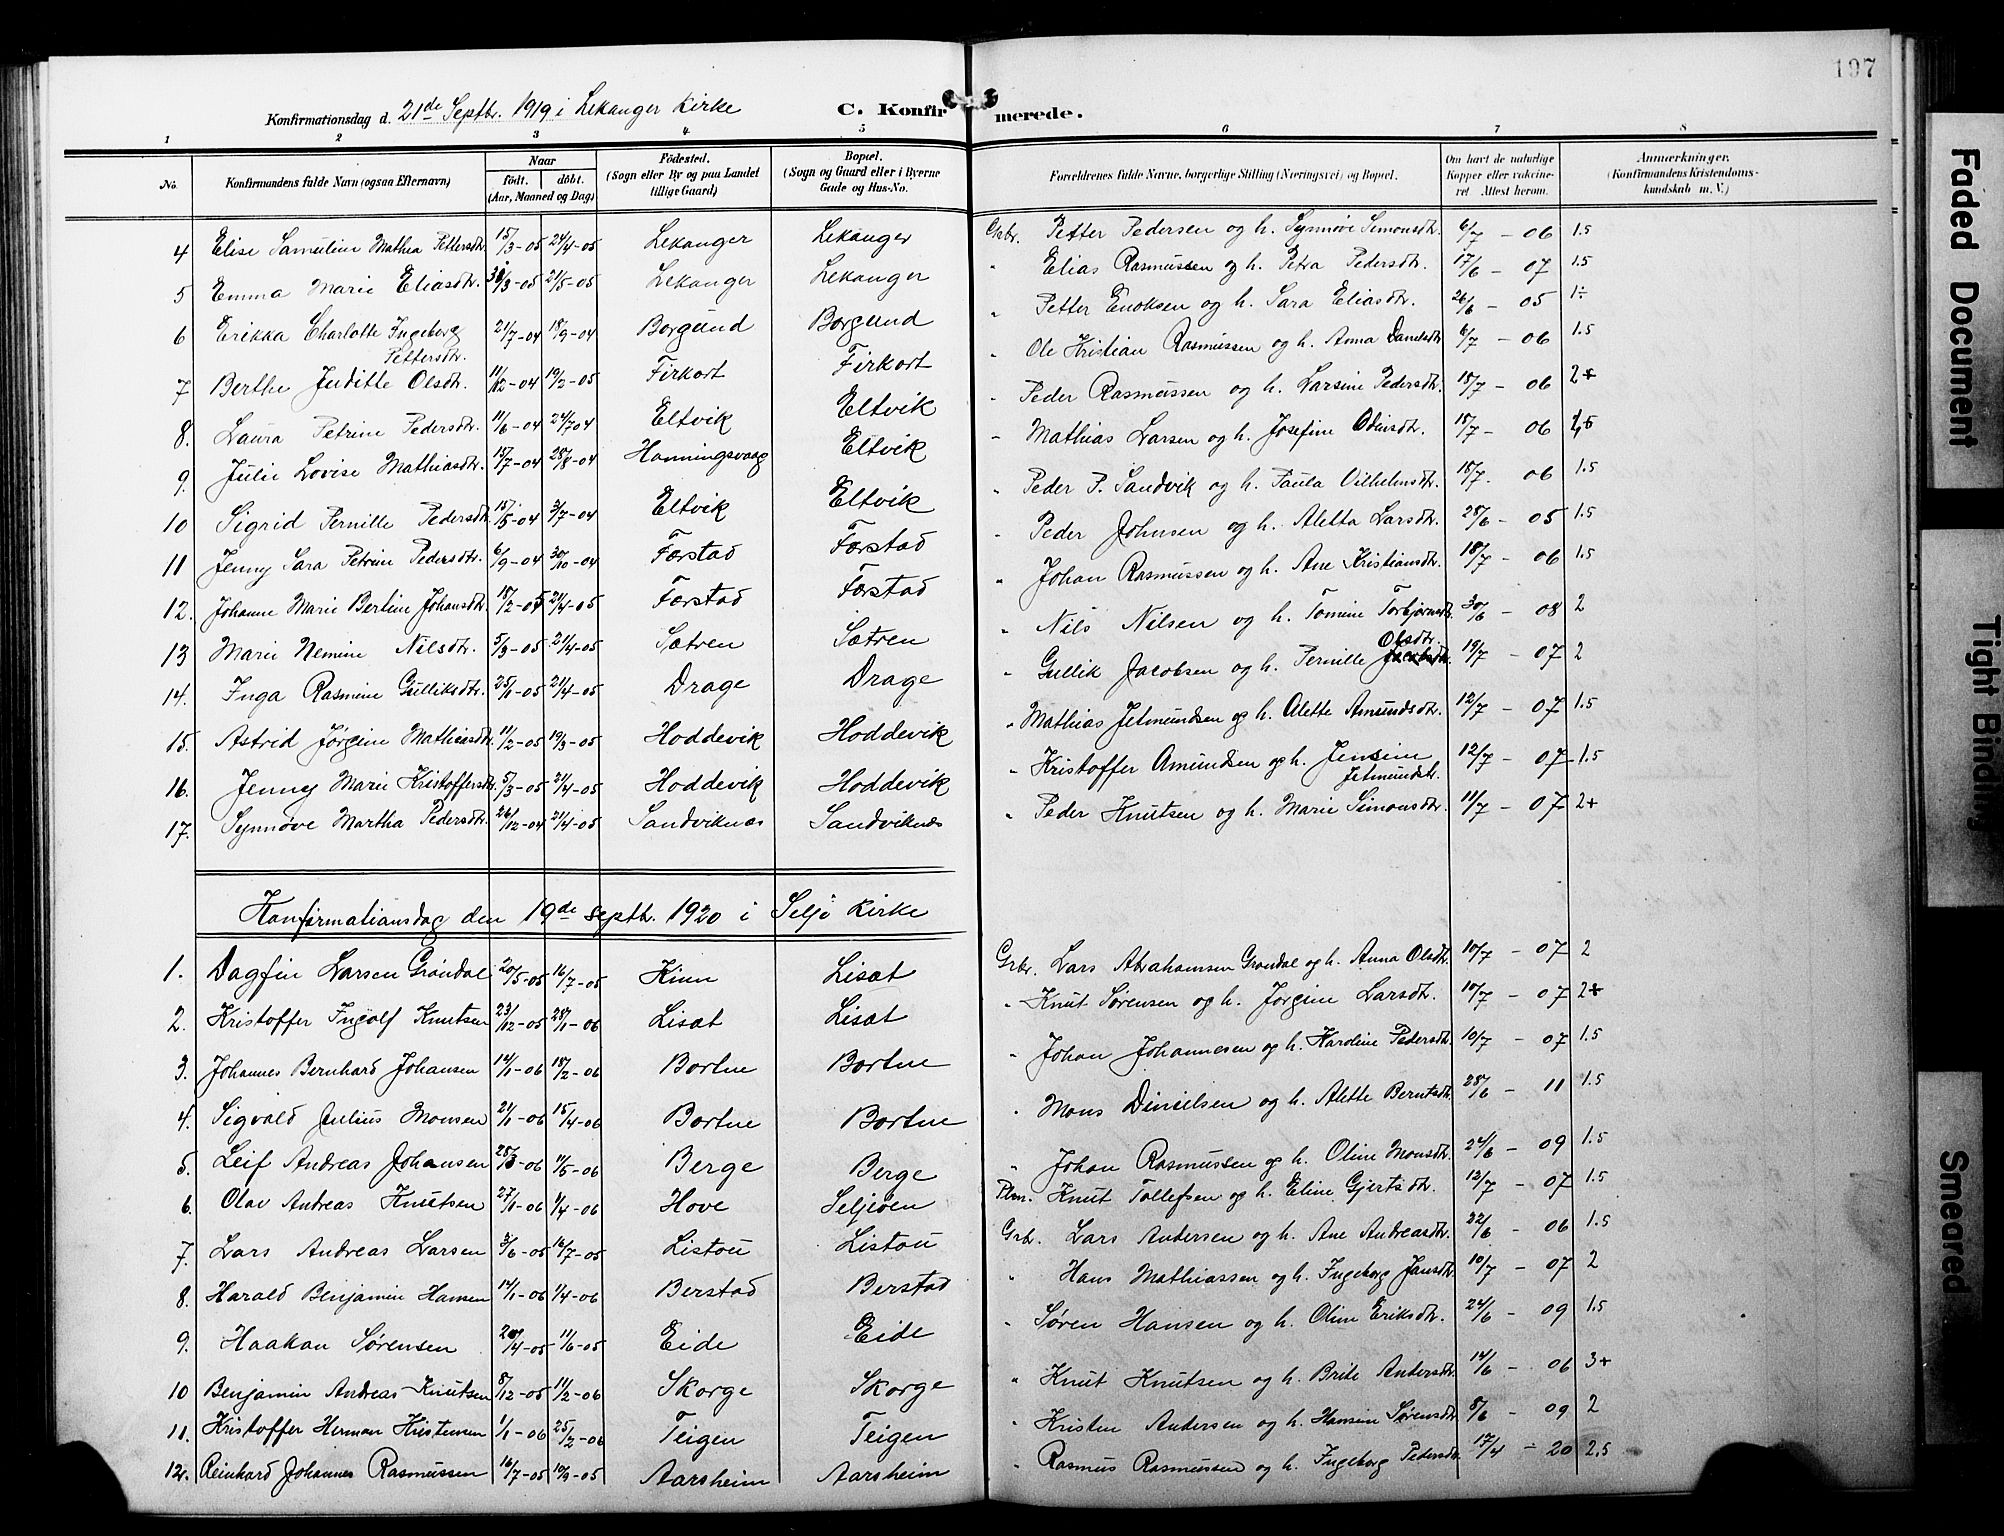 197
Konfirmationsdag d. 21de Septbr. 1919 i Lekanger Kirke
C. Konfirmerede.
1 2 3 4 5 6 7 8
No. Konfirmandens fulde Navn (ogsaa Efternavn) Naar födt. döbt. (Aar, Maaned og Dag) Födested. (Sogn eller By og paa Landet tillige Gaard) Bopæl. (Sogn og Gaard eller i Byerne Gade og Hus-No. Forældrenes fulde Navne, borgerlige Stilling (Næringsvei) og Bopæl. Om havt de naturlige Kopper eller vakcineret. Attest herom. Anmærkninger. (Konfirmandens Kristendomskundskab m. V.)
4 Elise Samuline Mathea Pettersdtr. 15/3-05 24/4-05 Lekanger Lekanger Grbr. Petter Pedersen og h. Synnøve Simonsdtr. 6/7 - 06 1.5
5 Emma Marie Eliasdtr. 31/3-05 21/5-05 Lekanger Lekanger " Elias Rasmussen og h. Petra Pedersdtr. 17/6 - 07 1.5
6 Erikka Charlotte Ingeborg Pettersdtr. 21/7-04 18/9-04 Borgund Borgund " Petter Enoksen og h. Sara Eliasdtr. 26/6 - 05 1÷
7 Berthe Juditte Olsdtr. 11/12-04 19/2-05 Firkort Firkort " Ole Kristian Rasmussen og h. Anna Danelsdtr 6/7 - 06 1.5
8. Laura Petrine Pedersdtr. 11/6-04 24/7 04 Eltvik Eltvik " Peder Rasmussen og h. Larsine Pedersdtr. 18/7 - 06 2+
9. Julie Lovise Mathiasdtr. 15/7-04 28/8-04 Honningsvaag Eltvik " Mathias Larsen og h. Josefine Odinsdtr. 18/7 - 06 1,5
10 Sigrid Pernille Pedersdtr. 15/5-04 3/7-04 Eltvik Eltvik " Peder P. Sandvik og h. Paula Vilhelmsdtr. 18/7. 06 1.5
11 Jenny Sara Petrine Pedersdtr. 6/9-04 30/10-04 Førstad Førstad " Peder Johnsen og h. Aletta Larsdtr. 28/6 - 05 1.5
12. Johanne Marie Bertine Johansdtr. 18/2-05 21/4-05 Førstad Førstad " Johan Rasmussen og h. Ane Kristiansdtr. 18/7 - 06 1.5
13 Marie Nemine Nilsdtr. 5/3-05 21/4-05 Sætren Sætren " Nils Nilsen og h. Tomine Torbjørnsdtr. 30/6 - 08 2
14. Inga Rasmine Gulliksdtr. 25/1-05 21/4-05 Drage Drage " Gullik Jacobsen og h. Pernille Olsdtr. 19/7 - 07 2
15. Astrid Jørgine Mathiasdtr. 11/2-05 19/3-05 Hoddevik Hoddevik " Mathias Jetmundsen og h. Alette Amundsdtr. 12/7 - 07 1.5
16. Jenny Marie Kristoffersdtr. 5/3-05 21/4-05 Hoddevik Hoddevik " Kristoffer Amundsen og h. Jensine Jetmundsdtr. 12/7 - 07 1.5
17. Synnøve Martha Pedersdtr. 26/12-04 21/4-05 Sandviknæs Sandviknæs " Peder Knutsen og h. Marie Simonsdtr. 11/7 - 07 2+
Konfirmationsdag den 19de septbr. 1920 i Seljø Kirke
1. Dagfin Larsen Grøndal 20/5-05 16/7-05 Kinn Lisæt Grbr. Lars Abrahamsen Grøndal og h. Anna Olsdtr. 10/7 - 07 2
2. Kristoffer Ingolf Knutsen 23/12-05 28/1-06 Lisæt Lisæt " Knut Sørensen og h. Jørgine Larsdtr. 10/7 - 07 2+
3. Johannes Bernhard Johansen 14/1-06 18/2-06 Bortne Bortne " Johan Johannesen og h. Karoline Pedersdtr. 10/7 - 07 1.5
4. Sigvald Julius Monsen 21/1-06 15/4-06 Bortne Bortne " Mons Dinielsen og h. Alette Berntsdtr. 28/6 - 11 1.5
5. Leif Andreas Johansen 25/3-06 11/5-06 Berge Berge " Johan Rasmussen og h. Oline Monsdtr. 24/6 - 09 1.5
6. Olav Andreas Knutsen 27/1-06 1/4-06 Hove Seljeøen Plm. Knut Tollefsen og h. Eline Gjertsdtr. 12/7 - 07 1.5
7. Lars Andreas Larsen 3/6-05 16/7-05 Listou Listou Grbr. Lars Andersen og h. Ane Andreasdtr. 22/6 - 06 1.5
8. Harald Benjamin Hansen 14/1-06 1/4-06 Berstad Berstad " Hans Mathiassen og h. Ingeborg Jansdtr. 10/7 - 07 2
9. Haakan Sørensen 20/4-05 11/6-05 Eide Eide " Søren Hansen og h. Oline Eriksdtr. 24/6 - 09 1.5
10 Benjamin Andreas Knutsen 8/12-05 11/2-06 Skorge Skorge " Knut Knutsen og h. Brite Andersdtr. 14/6 - 06 3+
11. Kristoffer Herman Kristensen 1/1-06 25/2-06 Teigen Teigen " Kristen Andersen og h. Hansine Sørensdtr. 8/6 - 09 2
12. Reinhard Johannes Rasmussen 16/7-05 10/9-05 Aarsheim Aarsheim " Rasmus Rasmussen og h. Ingeborg Pedersdtr. 17/4 - 20 2.5
Faded Document
Tight Binding
Smeared